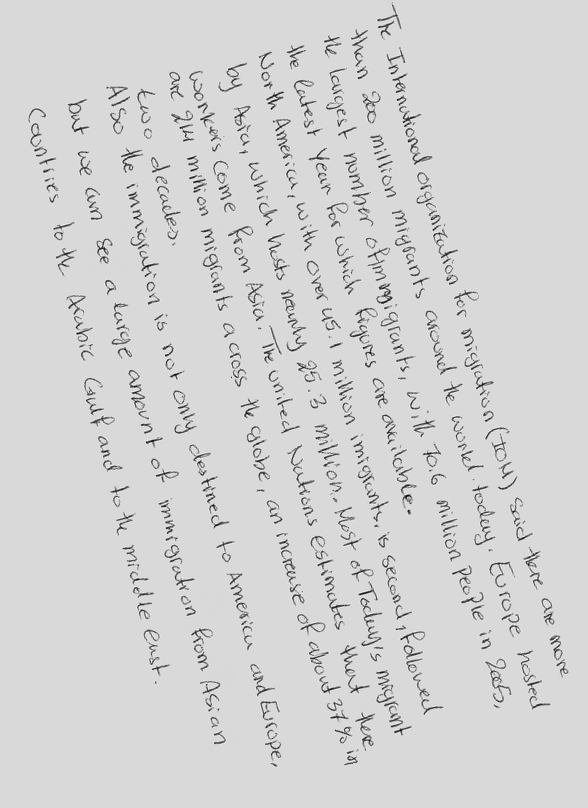 The International organization for migration (IOM) said there are more
than 200 million migrants around the world today. Europe hosted
the largest number of immigrants, with 70.6 million People in 2005,
the latest Year for which figures are available.
North America, with over 45.1 million imigrants, is second, followed
by Asia, which hosts nearly 25.3 million. Most of Today's migrant
workers come from Asia. The united Nations estimates that there
are 214 million migrants across the globe, an increase of about 37% in
two decades.
Also the immigration is not only destined to America and Europe,
but we can see a large amount of immigration from Asian
Countries to the Arabic Gulf and to the middle east.